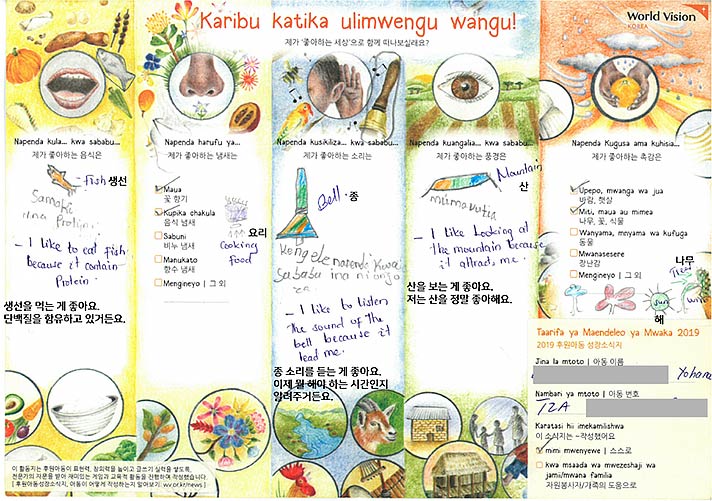 Karibu katika ulimwengu wangu!
제가 '좋아하는 세상'으로 함께 떠나보실래요?
World Vision
KOREA
Napenda kula... kwa sababu...
제가 좋아하는 음식은
Fish 생선
Samaki
ina Protini
- I like to eat fish
because it contain
Protein.
생선을 먹는 게 좋아요.
단백질을 함유하고 있거든요.
Napenda harufu ya...
제가 좋아하는 냄새는
Maua
꽃 향기
Kupika chakula
음식 냄새
Sabuni
비누 냄새
Manukato
향수 냄새
Mengineyo | 그 외
요리
Cooking
food
Napenda kusikiliza... kwa sababu...
제가 좋아하는 소리는
Bell. 종
Kengele napenda kwa
Sababu ina
- I like to listen
the sound of the
bell because it
lead me.
종 소리를 듣는 게 좋아요.
이제 뭘 해야 하는 시간인지
알려주거든요.
Napenda kuangalia... kwa sababu...
제가 좋아하는 풍경은
Mountain
산
mlima
- I like Looking at
the mountain because
it attracts me.
산을 보는 게 좋아요.
저는 산을 정말 좋아해요.
Napenda Kugusa ama kuhisia...
제가 좋아하는 촉감은
Upepo, mwanga wa jua
바람, 햇살
Miti, maua ao mimea
나무, 꽃, 식물
Wanyama, mnyama wa kufuga
동물
Mwanasesere
장난감
Mengineyo | 그 외
나무
Tree
Sun
해
Taarifa ya Maendeleo ya Mwaka 2019
2019 후원아동 성장소식지
Jina la mtoto | 아동 이름
Yohana
Nambari ya mtoto | 아동 번호
TZA
Karatasi hii imekamilishwa
이 소식지는 ~작성했어요
mimi mwenyewe | 스스로
kwa msaada wa mwezeshaji wa
jamii/mwana familia
자원봉사자/가족의 도움으로
이 활동지는 후원아동이 표현력, 창의력을 높이고 글쓰기 실력을 쌓도록,
전문가의 자문을 받아 재미있는 게임과 교육적 활동을 진행하며 작성했습니다.
[ 후원아동성장소식지, 아동이 어떻게 작성하는지 알아보기: wv.or.kr/news ]